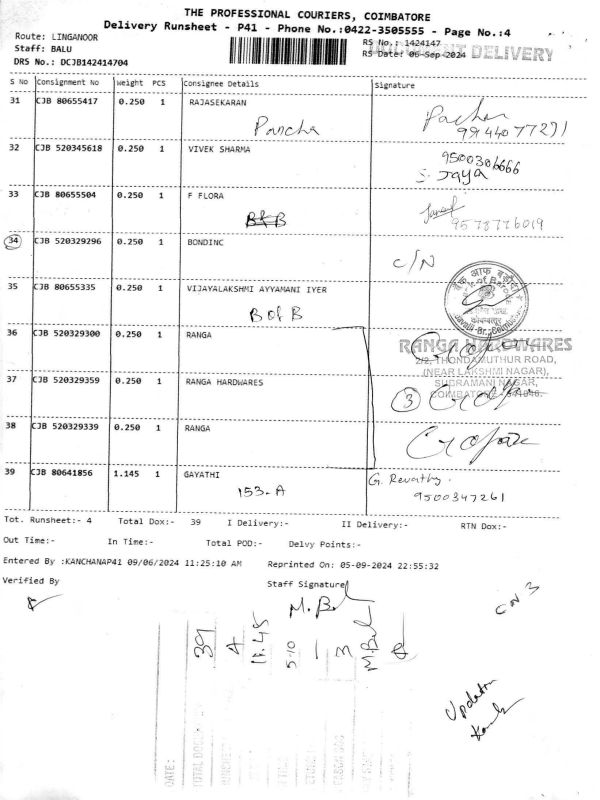 THE PROFESSIONAL COURIERS, COIMBATORE
Delivery Runsheet - P41 - Phone No.:0422-3505555 - Page No.:4
Route: LINGANOOR
Staff: BALU
DRS No.: DCJB142414704
RS No.: 1424147
RS Date: 06-Sep-2024
DELIVERY
S No Consignment No Weight PCS Consignee Details Signature
31 CJB 80655417 0.250 1 RAJASEKARAN
Pancha
9944077291
32 CJB 520345618 0.250 1 VIVEK SHARMA
9500306666
S. Jaya
33 CJB 80655504 0.250 1 F FLORA
B of B
9578776019
34 CJB 520329296 0.250 1 BONDINC
C/N
35 CJB 80655335 0.250 1 VIJAYALAKSHMI AYYAMANI IYER
B of B
36 CJB 520329300 0.250 1 RANGA
RANGA HARDWARES
2/2, THONDAMUTHUR ROAD,
(NEAR LAKSHMI NAGAR),
SUBRAMANI NAGAR,
37 CJB 520329359 0.250 1 RANGA HARDWARES
3
38 CJB 520329339 0.250 1 RANGA
39 CJB 80641856 1.145 1 GAYATHI
153-A
G. Revathy.
9500347261
Tot. Runsheet:- 4 Total Dox:- 39 I Delivery:- II Delivery:- RTN Dox:-
Out Time:- In Time:- Total POD:- Delvy Points:-
Entered By :KANCHANAP41 09/06/2024 11:25:10 AM Reprinted On: 05-09-2024 22:55:32
Verified By Staff Signature
M. Bal
CN 3
39
4
11.45
5.10
1
3
M.Bal
Updation
DATE: